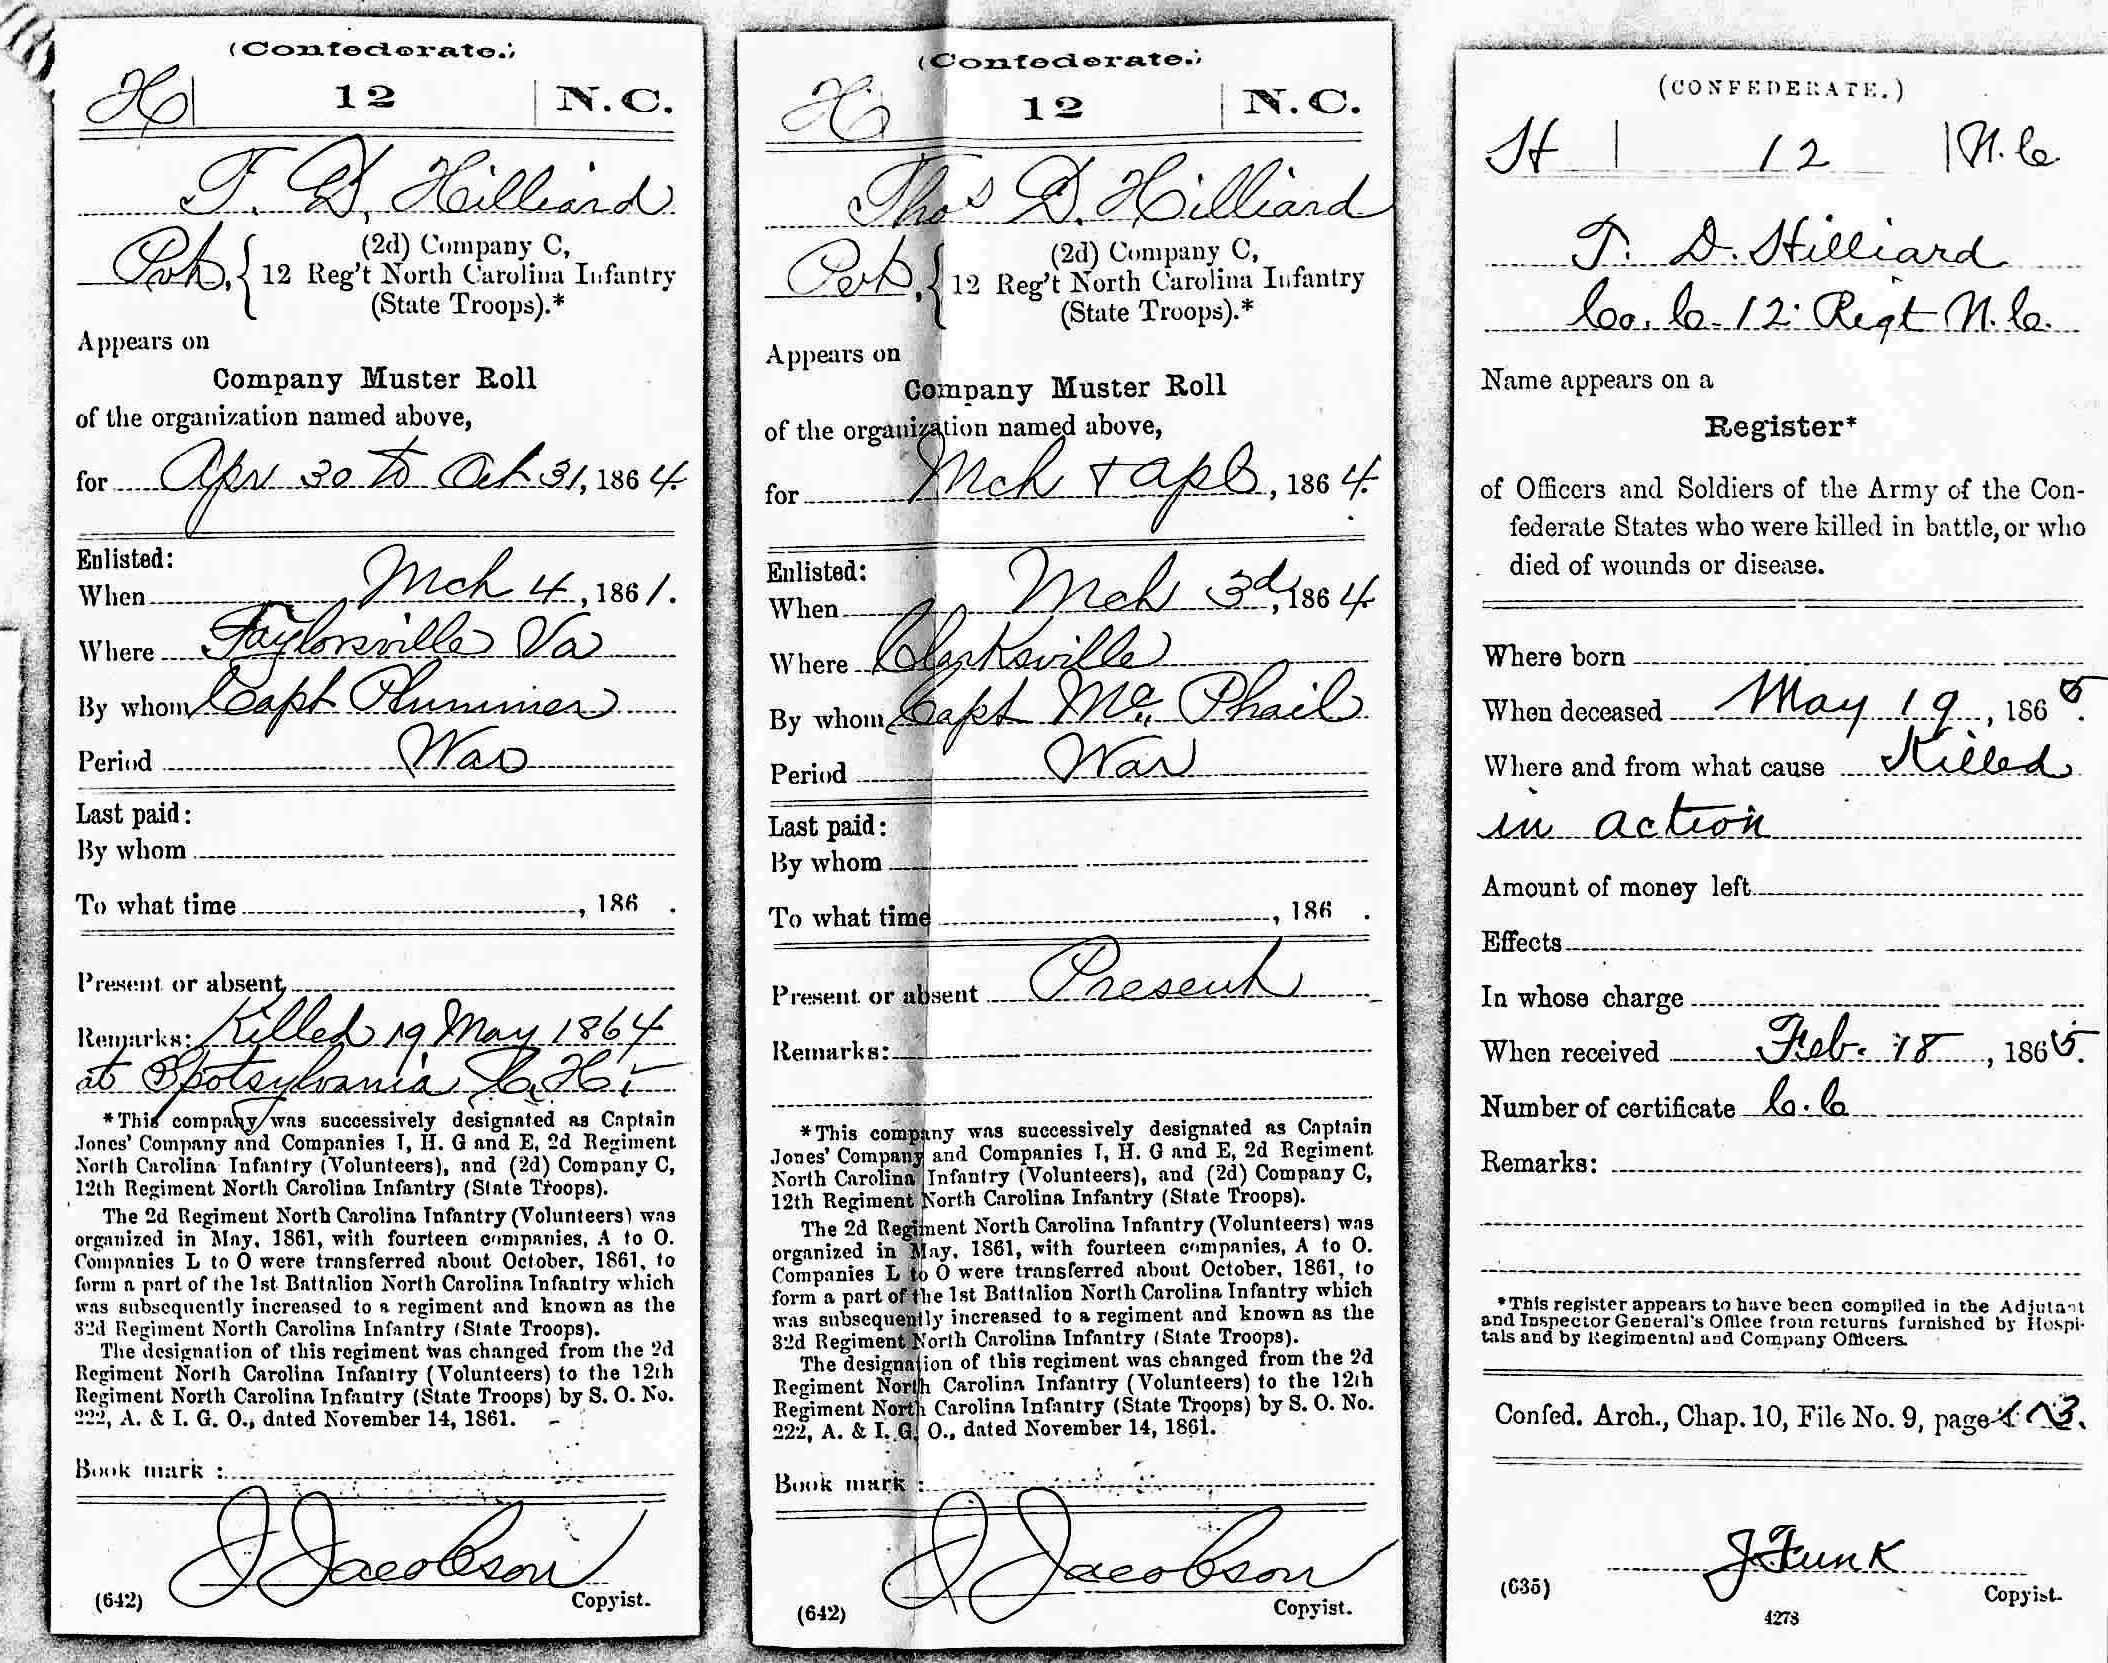 (Confederate.)
H | 12 | N.C.
T. D. Hilliard
Pvt, { (2d) Company C,
12 Reg't North Carolina Infantry
(State Troops).*
Appears on
Company Muster Roll
of the organization named above,
for Apr 30 to Oct 31, 1864.
Enlisted:
When Mch 4, 1861.
Where Taylorsville Va
By whom Capt Plummer
Period War
Last paid:
By whom
To what time , 186 .
Present or absent
Remarks: Killed 19 May 1864
at Spotsylvania C. H.
*This company was successively designated as Captain
Jones' Company and Companies I, H. G and E, 2d Regiment
North Carolina Infantry (Volunteers), and (2d) Company C,
12th Regiment North Carolina Infantry (State Troops).
The 2d Regiment North Carolina Infantry (Volunteers) was
organized in May, 1861, with fourteen companies, A to O.
Companies L to O were transferred about October, 1861, to
form a part of the 1st Battalion North Carolina Infantry which
was subsequently increased to a regiment and known as the
32d Regiment North Carolina Infantry (State Troops).
The designation of this regiment was changed from the 2d
Regiment North Carolina Infantry (Volunteers) to the 12th
Regiment North Carolina Infantry (State Troops) by S. O. No.
222, A. & I. G. O., dated November 14, 1861.
Book mark :
J Jacobson
(642) Copyist.
(Confederate.)
H | 12 | N.C.
Thos D. Hilliard
Pvt, { (2d) Company C,
12 Reg't North Carolina Infantry
(State Troops).*
Appears on
Company Muster Roll
of the organization named above,
for Mch + Apl, 1864.
Enlisted:
When Mch 3d, 1864
Where Clarksville
By whom Capt Mc Phail
Period War
Last paid:
By whom
To what time , 186 .
Present or absent Present
Remarks:
*This company was successively designated as Captain
Jones' Company and Companies I, H. G and E, 2d Regiment
North Carolina Infantry (Volunteers), and (2d) Company C,
12th Regiment North Carolina Infantry (State Troops).
The 2d Regiment North Carolina Infantry (Volunteers) was
organized in May, 1861, with fourteen companies, A to O.
Companies L to O were transferred about October, 1861, to
form a part of the 1st Battalion North Carolina Infantry which
was subsequently increased to a regiment and known as the
32d Regiment North Carolina Infantry (State Troops).
The designation of this regiment was changed from the 2d
Regiment North Carolina Infantry (Volunteers) to the 12th
Regiment North Carolina Infantry (State Troops) by S. O. No.
222, A. & I. G. O., dated November 14, 1861.
Book mark :
J Jacobson
(642) Copyist.
(CONFEDERATE.)
H | 12 | N.C
T. D. Hilliard
Co. C. 12 Regt N.C.
Name appears on a
Register*
of Officers and Soldiers of the Army of the Con-
federate States who were killed in battle, or who
died of wounds or disease.
Where born
When deceased May 19, 1865.
Where and from what cause Killed
in action
Amount of money left
Effects
In whose charge
When received Feb. 18, 1865.
Number of certificate C.C
Remarks:
*This register appears to have been compiled in the Adjutant
and Inspector General's Office from returns furnished by Hospi-
tals and by Regimental and Company Officers.
Confed. Arch., Chap. 10, File No. 9, page
J Funk
(635) Copyist.
4278